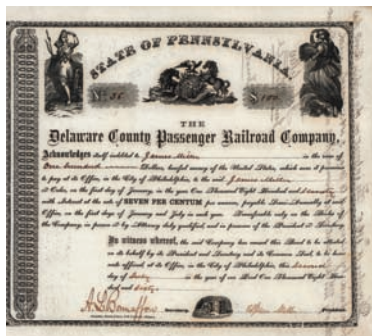 STATE OF PENNSYLVANIA.
No. 36 $ 100
THE
Delaware County Passenger Railroad Company,
Acknowledges itself indebted to James Miller in the sum of
One hundred Dollars, lawful money of the United States, which sum it promises
to pay at its Office, in the City of Philadelphia, to the said James Miller
or Order, on the first day of January, in the year One Thousand Eight Hundred and Seventy
with Interest at the rate of SEVEN PER CENTUM per annum, payable Semi-Annually at said
Office, on the first days of January and July in each year. Transferable only on the Books of
the Company, in person or by Attorney duly qualified, and in presence of the President or Secretary.
In witness whereof, the said Company has caused this Bond to be attested
on its behalf by its President and Secretary and its Common Seal, to be here-
unto affixed, at its Office, in the City of Philadelphia, this Second
day of July in the year of our Lord One Thousand Eight Hun-
dred and Sixty.
A. L. Bonnaffon Secretary. Miller President.